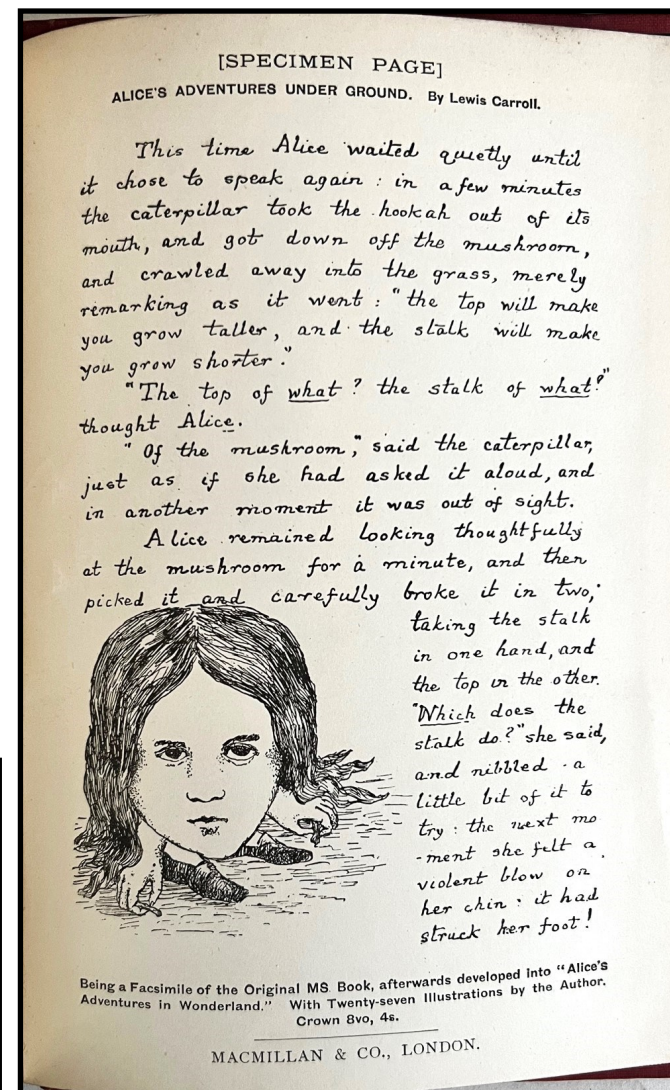 [SPECIMEN PAGE]
ALICE'S ADVENTURES UNDER GROUND. By Lewis Carroll.
This time Alice waited quietly until
it chose to speak again : in a few minutes
the caterpillar took the hookah out of its
mouth, and got down off the mushroom,
and crawled away into the grass, merely
remarking as it went : "the top will make
you grow taller, and the stalk will make
you grow shorter."
"The top of what? the stalk of what?"
thought Alice.
"Of the mushroom," said the caterpillar,
just as if she had asked it aloud, and
in another moment it was out of sight.
Alice remained looking thoughtfully
at the mushroom for a minute, and then
picked it and carefully broke it in two,
taking the stalk
in one hand, and
the top in the other.
"Which does the
stalk do?" she said,
and nibbled a
little bit of it to
try : the next mo
-ment she felt a
violent blow on
her chin : it had
struck her foot!
Being a Facsimile of the Original MS. Book, afterwards developed into "Alice's
Adventures in Wonderland." With Twenty-seven Illustrations by the Author.
Crown 8vo, 4s.
MACMILLAN & CO., LONDON.